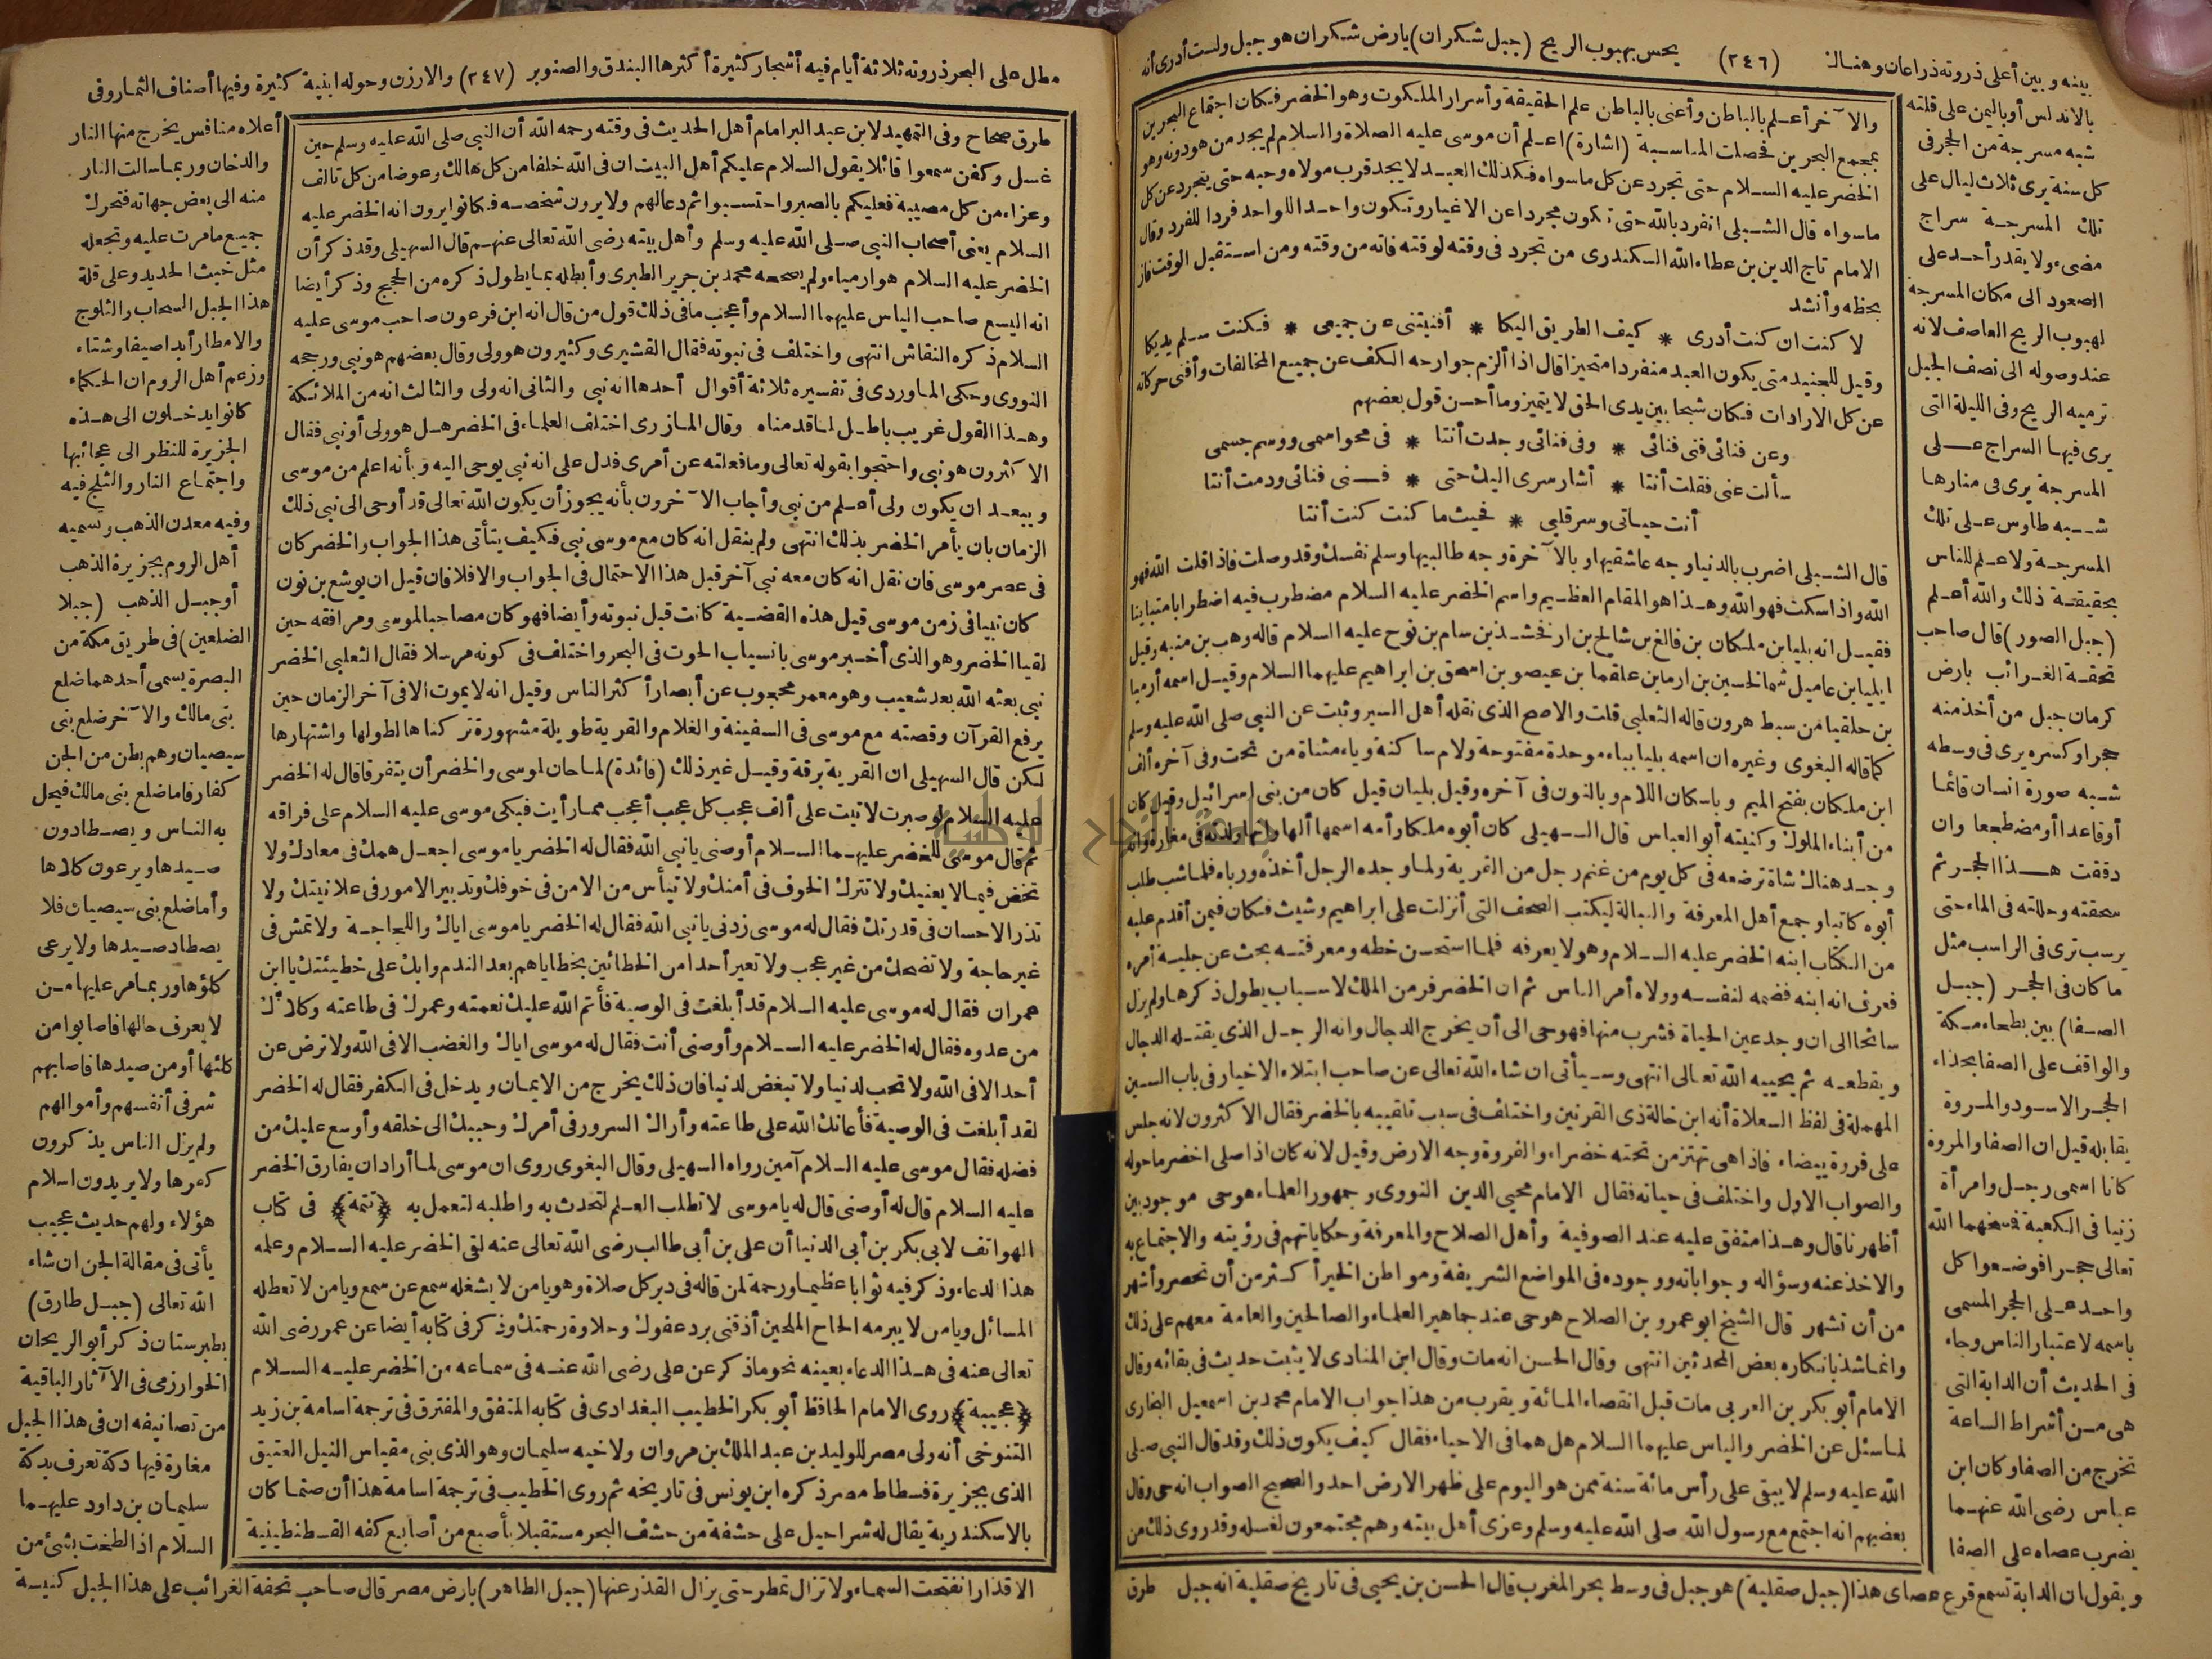 بينه وبين أعلى ذروته ذراعان وهنالك (٢٤٦) يحس بهبوب الريح (جبل شكران) بارض شكران هو جبل ولست أدرى أنه
بالاندلس أو باليمن على قلته
شبه مسرجة من الحجر فى
كل سنة يرى ثلاث ليال على
تلك المسرجة سراج
مضىء ولا يقدر أحد على
الصعود الى مكان المسرجة
لهبوب الريح العاصف لانه
عند وصوله الى نصف الجبل
ترميه الريح وفى الليلة التى
يرى فيها السراج على
المسرجة يرى فى منارها
شبه طاوس على تلك
المسرجة ولا علم للناس
بحقيقة ذلك والله أعلم
(جبل الصور) قال صاحب
تحفة الغرائب بارض
كرمان جبل من أخذ منه
حجرا وكسره يرى فى وسطه
شبه صورة انسان قائما
أو قاعدا أو مضطجعا وان
دققت هذا الحجر ثم
سحقته وحللته فى الماء حتى
يرسب ترى فى الراسب مثل
ما كان فى الحجر (جبل
الصفا) بين بطحاء مكة
والواقف على الصفا بحذاء
الحجر الاسود والمروة
يقابله قيل ان الصفا والمروة
كانا اسمى رجل وامرأة
زنيا فى الكعبة فمسخهما الله
تعالى حجرا فوضعوا كل
واحد على الحجر المسمى
باسمه لاعتبار الناس وجاء
فى الحديث أن الدابة التى
هى من أشراط الساعة
تخرج من الصفا وكان ابن
عباس رضى الله عنهما
يضرب عصاه على الصفا
والآخر أعلم بالباطن وأعنى بالباطن علم الحقيقة وأسرار الملكوت وهو الخضر فكان اجتماع البحرين
بمجمع البحرين فحصلت المناسبة (اشارة) اعلم أن موسى عليه الصلاة والسلام لم يجد من هو دونه وهو
الخضر عليه السلام حتى تجرد عن كل ما سواه فكذلك العبد لا يجد قرب مولاه وحبه حتى يتجرد عن كل
ما سواه قال الشبلى انفرد بالله حتى تكون مجردا عن الاغيار وتكون واحدا للواحد فردا للفرد وقال
الامام تاج الدين بن عطاء الله السكندرى من تجرد فى وقته لوقته فاته من وقته ومن استقبل الوقت فاز
بحظه وأنشد
لا كنت ان كنت أدرى * كيف الطريق اليكا * أفنيتنى عن جميعى * فكنت سلم يديكا
وقيل للجنيد متى يكون العبد منفردا متحيزا قال اذا ألزم جوارحه الكف عن جميع المخالفات وأفنى حركاته
عن كل الارادات فكان شبحا بين يدى الحق لا يتميز وما أحسن قول بعضهم
وعن فنائى فنى فنائى * وفى فنائى وجدت أنتا * فى محو اسمى ورسم جسمى
سألت عنى فقلت أنتا * أشار سرى اليك حتى * فنى فنائى ودمت أنتا
أنت حياتى وسر قلبى * فحيث ما كنت كنت أنتا
قال الشبلى اضرب بالدنيا وجه عاشقيها وبالآخرة وجه طالبيها وسلم نفسك وقد وصلت فاذا قلت الله فهو
الله واذا سكت فهو الله وهذا هو المقام العظيم واسم الخضر عليه السلام مضطرب فيه اضطرابا متباينا
فقيل انه بليا بن ملكان بن فالغ بن شالخ بن ارفخشذ بن سام بن نوح عليه السلام قاله وهب بن منبه وقيل
ايليا بن عاميل شمالخسين بن ارما بن علقما بن عيصو بن اسحق بن ابراهيم عليهما السلام وقيل اسمه أرميا
بن حلقيا من سبط هرون قاله الثعلبى قلت والاصح الذى نقله أهل السير وثبت عن النبى صلى الله عليه وسلم
كما قاله البغوى وغيره ان اسمه بليا بباء موحدة مفتوحة ولام ساكنة وياء مثناة من تحت وفى آخره ألف
ابن ملكان بفتح الميم وباسكان اللام وبالنون فى آخره وقيل بليان قيل كان من بنى اسرائيل وقيل كان
من أبناء الملوك وكنيته أبو العباس قال السهيلى كان أبوه ملكا وأمه اسمها ألها وانها ولدته فى مغارة وانه
وجد هناك شاة ترضعه فى كل يوم من غنم رجل من القرية ولما وجده الرجل أخذه ورباه فلما شب طلب
أبوه كاتبا وجمع أهل المعرفة والنبالة ليكتب الصحف التى أنزلت على ابراهيم وشيث فكان فيمن أقدم عليه
من الكتاب ابنه الخضر عليه السلام وهو لا يعرفه فلما استحسن خطه ومعرفته بحث عن جلية أمره
فعرف انه ابنه فضمه لنفسه وولاه أمر الناس ثم ان الخضر فر من الملك لاسباب يطول ذكرها ولم يزل
سائحا الى ان وجد عين الحياة فشرب منها فهو حى الى أن يخرج الدجال وانه الرجل الذى يقتله الدجال
ويقطعه ثم يحييه الله تعالى انتهى وسيأتى ان شاء الله تعالى عن صاحب ابتلاء الاخيار فى باب السين
المهملة فى لفظ السعلاة أنه ابن خالة ذى القرنين واختلف فى سبب تلقيبه بالخضر فقال الاكثرون لانه جلس
على فروة بيضاء فاذا هى تهتز من تحته خضراء والفروة وجه الارض وقيل لانه كان اذا صلى اخضر ما حوله
والصواب الاول واختلف فى حياته فقال الامام محيى الدين النووى وجمهور العلماء هو حى موجود بين
أظهرنا قال وهذا متفق عليه عند الصوفية وأهل الصلاح والمعرفة وحكاياتهم فى رؤيته والاجتماع به
والاخذ عنه وسؤاله وجواباته ووجوده فى المواضع الشريفة ومواطن الخير أكثر من أن تحصر وأشهر
من أن تشهر قال الشيخ ابو عمرو بن الصلاح هو حى عند جماهير العلماء والصالحين والعامة معهم على ذلك
وانما شذ بانكاره بعض المحدثين انتهى وقال الحسن انه مات وقال ابن المنادى لا يثبت حديث فى بقائه وقال
الامام أبو بكر بن العربى مات قبل انقضاء المائة ويقرب من هذا جواب الامام محمد بن اسمعيل البخارى
لما سئل عن الخضر والياس عليهما السلام هل هما فى الاحياء فقال كيف يكون ذلك وقد قال النبى صلى
الله عليه وسلم لا يبقى على رأس مائة سنة ممن هو اليوم على ظهر الارض احد والصحيح الصواب انه حى وقال
بعضهم انه اجتمع مع رسول الله صلى الله عليه وسلم وعزى أهل بيته وهم مجتمعون لغسله وقد روى ذلك من
ويقول ان الدابة تسمع قرع عصاى هذا (جبل صقلية) هو جبل فى وسط بحر المغرب قال الحسن بن يحيى فى تاريخ صقلية انه جبل طرق
مطل على البحر ذروته ثلاثة أيام فيه أشجار كثيرة أكثرها البندق والصنوبر (٢٤٧) والارزن وحوله ابنية كثيرة وفيها أصناف الثمار وفى
طرق صحاح وفى التمهيد لابن عبد البر امام أهل الحديث فى وقته رحمه الله أن النبى صلى الله عليه وسلم حين
غسل وكفن سمعوا قائلا يقول السلام عليكم أهل البيت ان فى الله خلفا من كل هالك وعوضا من كل تالف
وعزاء من كل مصيبة فعليكم بالصبر واحتسبوا ثم دعا لهم ولا يرون شخصه فكانوا يرون انه الخضر عليه
السلام يعنى أصحاب النبى صلى الله عليه وسلم وأهل بيته رضى الله تعالى عنهم قال السهيلى وقد ذكر أن
الخضر عليه السلام هو ارمياء ولم يصححه محمد بن جرير الطبرى وأبطله بما يطول ذكره من الحجج وذكر أيضا
انه اليسع صاحب الياس عليهما السلام وأعجب ما فى ذلك قول من قال انه ابن فرعون صاحب موسى عليه
السلام ذكره النقاش انتهى واختلف فى نبوته فقال القشيرى وكثيرون هو ولى وقال بعضهم هو نبى ورجحه
النووى وحكى الماوردى فى تفسيره ثلاثة أقوال أحدها انه نبى والثانى انه ولى والثالث انه من الملائكة
وهذا القول غريب باطل لما قدمناه وقال المازرى اختلف العلماء فى الخضر هل هو ولى أو نبى فقال
الاكثرون هو نبى واحتجوا بقوله تعالى وما فعلته عن أمرى فدل على انه نبى يوحى اليه وبأنه اعلم من موسى
ويبعد ان يكون ولى أعلم من نبى وأجاب الآخرون بأنه يجوز أن يكون الله تعالى قد أوحى الى نبى ذلك
الزمان بان يأمر الخضر بذلك انتهى ولم ينقل انه كان مع موسى نبى فكيف يتأتى هذا الجواب والخضر كان
فى عصر موسى فان نقل انه كان معه نبى آخر قبل هذا الاحتمال فى الجواب والا فلا فان قيل ان يوشع بن نون
كان نبيا فى زمن موسى قيل هذه القضية كانت قبل نبوته وأيضا فهو كان مصاحبا لموسى ومرافقه حين
لقيا الخضر وهو الذى أخبر موسى بانسياب الحوت فى البحر واختلف فى كونه مرسلا فقال الثعلبى الخضر
نبى بعثه الله بعد شعيب وهو معمر محجوب عن أبصار أكثر الناس وقيل انه لا يموت الا فى آخر الزمان حين
يرفع القرآن وقصته مع موسى فى السفينة والغلام والقرية طويلة مشهورة تركناها لطولها واشتهارها
لكن قال السهيلى ان القرية برقة وقيل غير ذلك (فائدة) لما حان لموسى والخضر أن يتفرقا قال له الخضر
عليه السلام لو صبرت لاتيت على ألف عجب كل عجب أعجب مما رأيت فبكى موسى عليه السلام على فراقه
ثم قال موسى للخضر عليهما السلام أوصنى يا نبى الله فقال له الخضر يا موسى اجعل همك فى معادك ولا
تخض فيما لا يعنيك ولا تترك الخوف فى أمنك ولا تيأس من الامن فى خوفك وتدبر الامور فى علانيتك ولا
تذر الاحسان فى قدرتك فقال له موسى زدنى يا نبى الله فقال له الخضر يا موسى اياك واللجاجة ولا تمش فى
غير حاجة ولا تضحك من غير عجب ولا تعير أحدا من الخطائين بخطاياهم بعد الندم وابك على خطيئتك يا ابن
عمران فقال له موسى عليه السلام قد أبلغت فى الوصية فأتم الله عليك نعمته وعمرك فى طاعته وكلأك
من عدوه فقال له الخضر عليه السلام وأوصنى أنت فقال له موسى اياك والغضب الا فى الله ولا ترض عن
أحد الا فى الله ولا تحب لدنيا ولا تبغض لدنيا فان ذلك يخرج من الايمان ويدخل فى الكفر فقال له الخضر
لقد أبلغت فى الوصية فأعانك الله على طاعته وأراك السرور فى أمرك وحببك الى خلقه وأوسع عليك من
فضله فقال موسى عليه السلام آمين رواه السهيلى وقال البغوى روى ان موسى لما أراد ان يفارق الخضر
عليه السلام قال له أوصنى قال له يا موسى لا تطلب العلم لتحدث به واطلبه لتعمل به (تتمة) فى كتاب
الهواتف لابى بكر بن أبى الدنيا أن على بن أبى طالب رضى الله تعالى عنه لقى الخضر عليه السلام وعلمه
هذا الدعاء وذكر فيه ثوابا عظيما ورحمة لمن قاله فى دبر كل صلاة وهو يا من لا يشغله سمع عن سمع ويا من لا تغلطه
المسائل ويا من لا يبرمه الحاح الملحين أذقنى برد عفوك وحلاوة رحمتك وذكر فى كتابه أيضا عن عمر رضى الله
تعالى عنه فى هذا الدعاء بعينه نحو ما ذكر عن على رضى الله عنه فى سماعه من الخضر عليه السلام
(عجيبة) روى الامام الحافظ أبو بكر الخطيب البغدادى فى كتابه المتفق والمفترق فى ترجمة اسامة بن زيد
التنوخى أنه ولى مصر للوليد بن عبد الملك بن مروان ولاخيه سليمان وهو الذى بنى مقياس النيل العتيق
الذى بجزيرة فسطاط مصر ذكره ابن يونس فى تاريخه ثم روى الخطيب فى ترجمة اسامة هذا أن صنما كان
بالاسكندرية يقال له شراحيل على حشفة من حشف البحر مستقبلا بأصبع من أصابع كفه القسطنطينية
أعلاه منافس يخرج منها النار
والدخان وربما سالت النار
منه الى بعض جهاته فتحرك
جميع ما مرت عليه وتجعله
مثل خبث الحديد وعلى قلة
هذا الجبل السحاب والثلوج
والامطار أبدا صيفا وشتاء
وزعم أهل الروم ان الحكماء
كانوا يدخلون الى هذه
الجزيرة للنظر الى عجائبها
واجتماع النار والثلج فيه
وفيه معدن الذهب وتسميه
أهل الروم بجزيرة الذهب
أو جبل الذهب (جبلا
الضلعين) فى طريق مكة من
البصرة يسمى أحدهما ضلع
بنى مالك والآخر ضلع بنى
سيصيان وهم بطن من الجن
كفار فاما ضلع بنى مالك فيحل
به الناس ويصطادون
صيدها ويرعون كلأها
وأما ضلع بنى سيصيان فلا
يصطاد صيدها ولا يرعى
كلؤها وربما مر عليها من
لا يعرف حالها فاصابوا من
كلئها أو من صيدها فاصابهم
شر فى أنفسهم وأموالهم
ولم يزل الناس يذكرون
كفرها ولا يريدون اسلام
هؤلاء ولهم حديث عجيب
يأتى فى مقالة الجن ان شاء
الله تعالى (جبل طارق)
بطبرستان ذكر أبو الريحان
الخوارزمى فى الآثار الباقية
من تصانيفه ان فى هذا الجبل
مغارة فيها دكة تعرف بدكة
سليمان بن داود عليهما
السلام اذا لطخت بشىء من
الاقذار انفتحت السماء ولا تزال تمطر حتى يزال القذر عنها (جبل الطاهر) بارض مصر قال صاحب تحفة الغرائب على هذا الجبل كنيسة